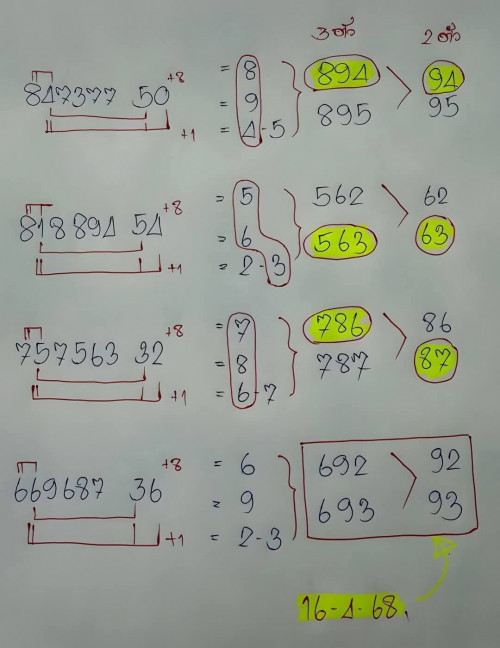 3 ตัว 2 ตัว
+8 = 8 894 94
847377 50 = 9 895 95
+1 = 4-5
+8 = 5 562 62
818894 54 = 6 563 63
+1 = 2-3
+8 = 7 786 86
757563 32 = 8 787 87
+1 = 6-7
+8 = 6 692 92
669687 36 = 9 693 93
+1 = 2-3
16-4-68